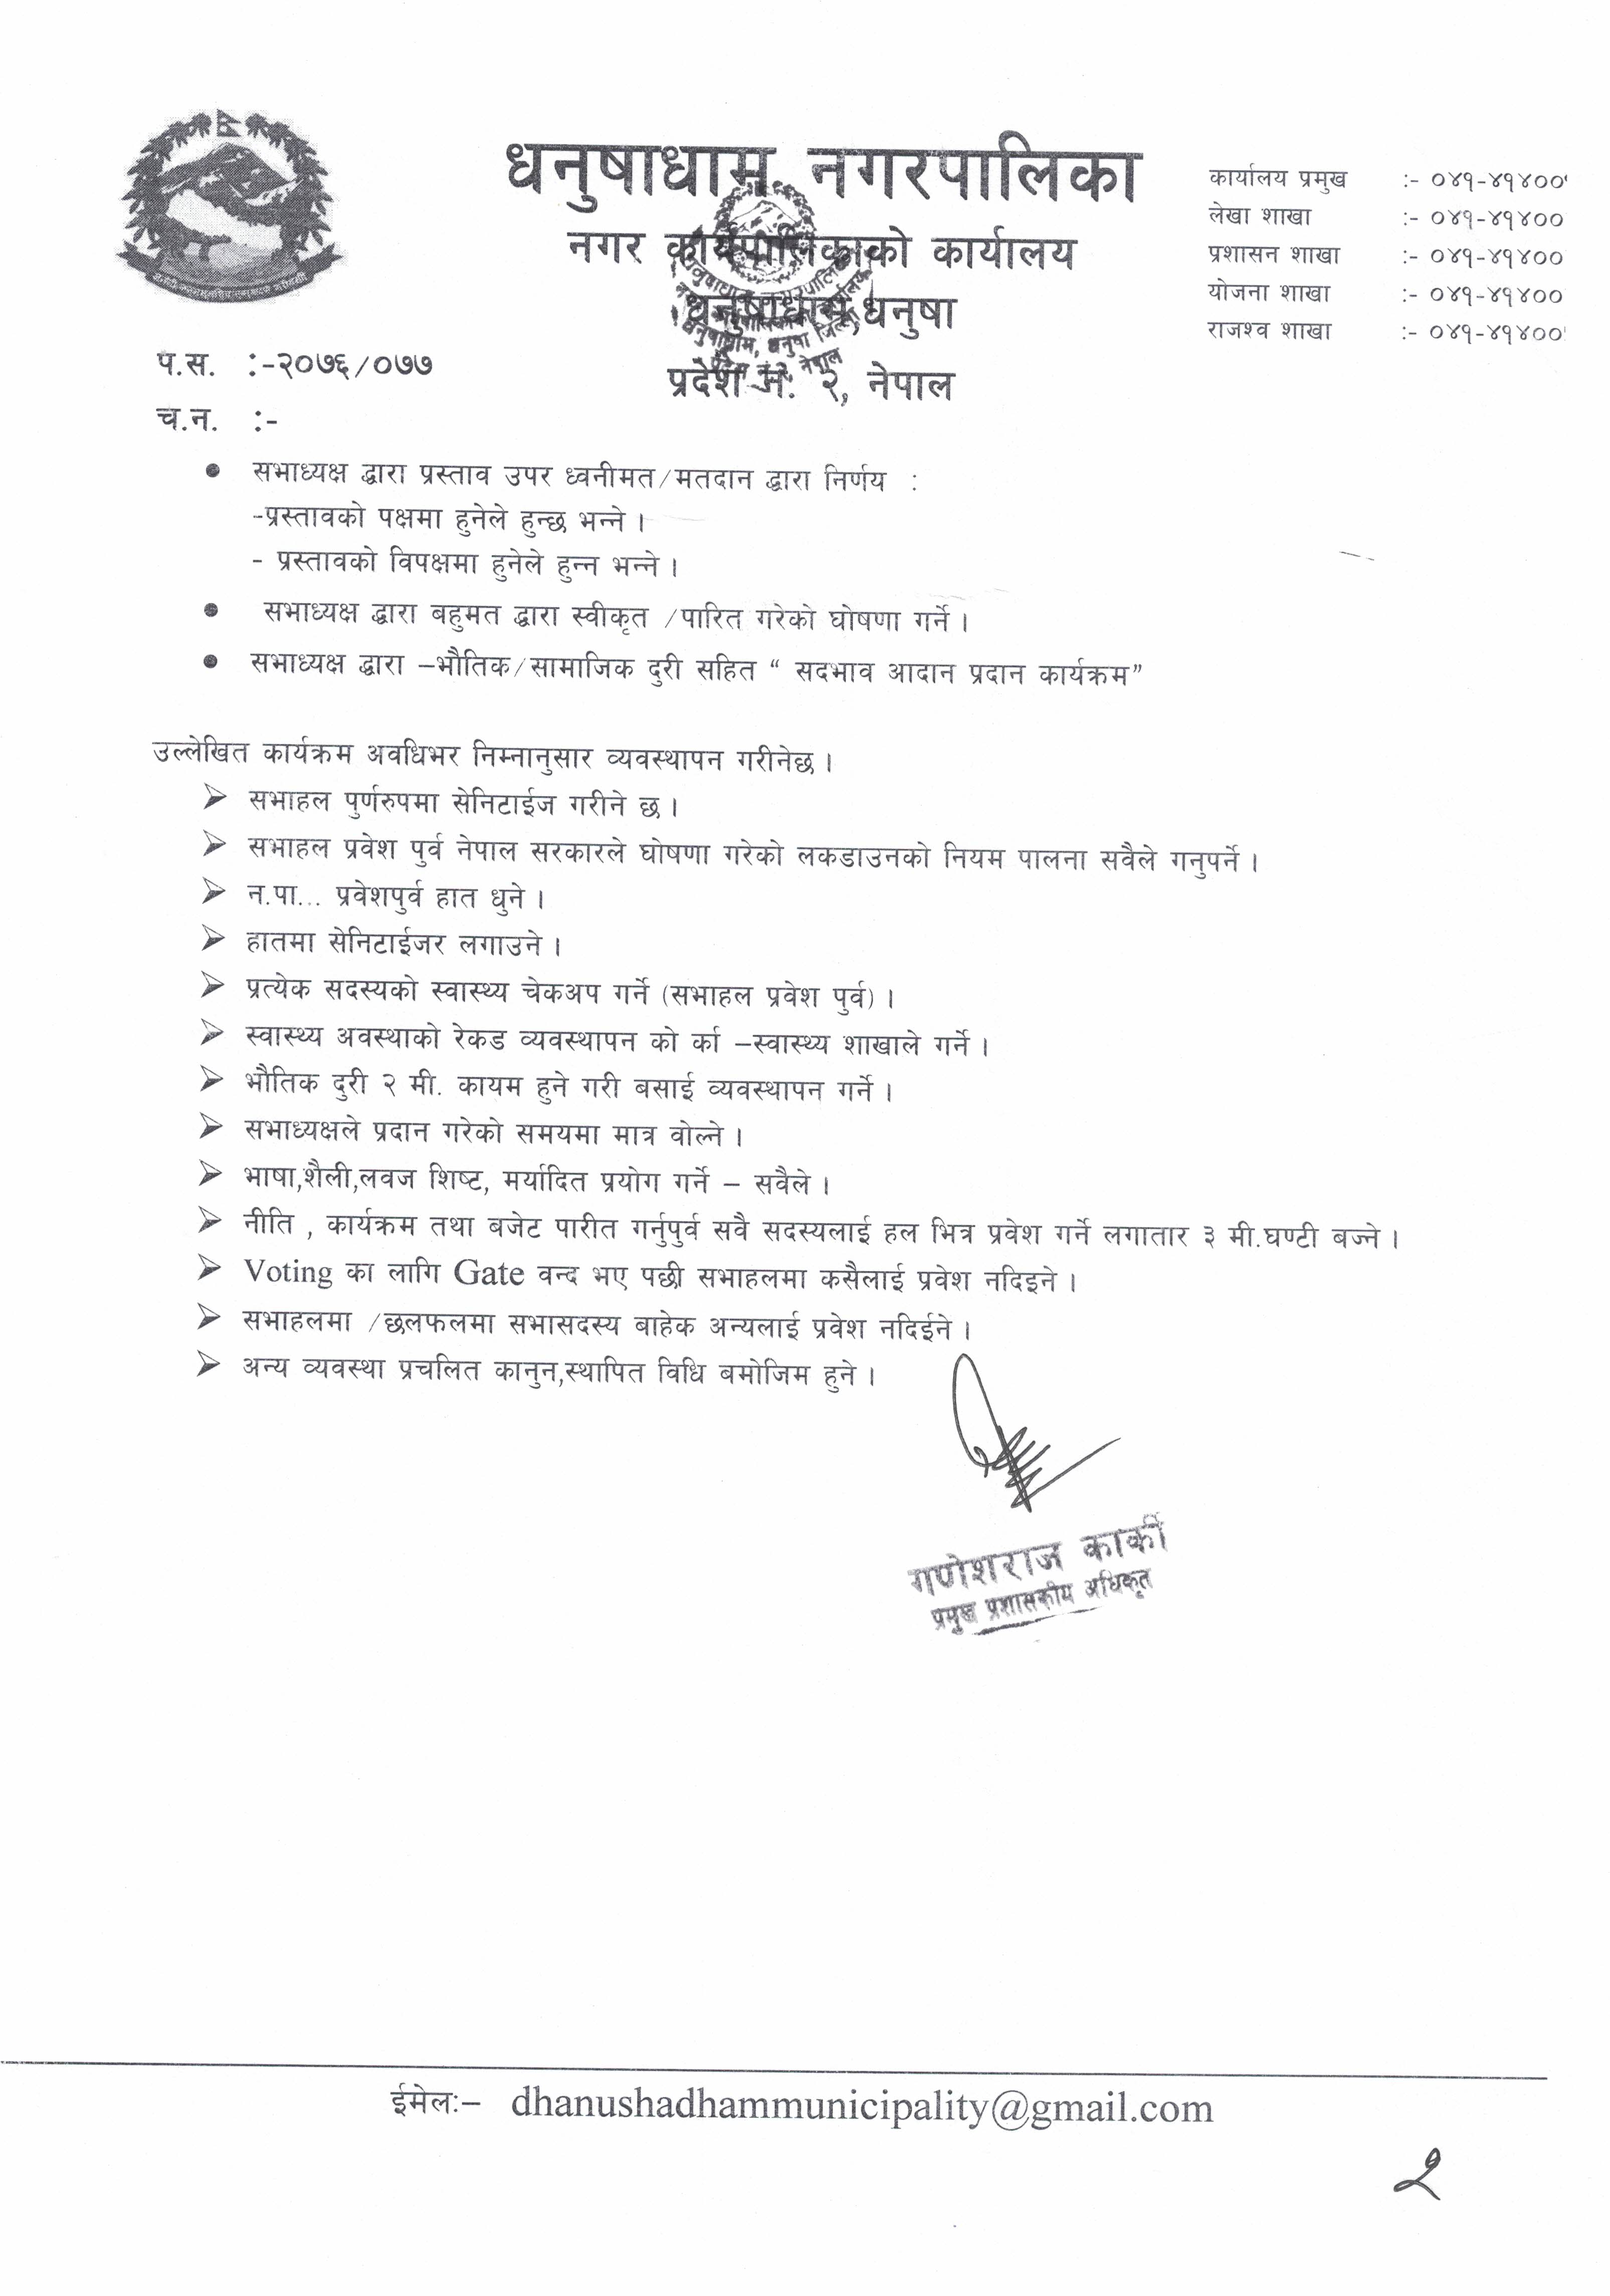 धनुषाधाम नगरपालिका
नगर कार्यपालिकाको कार्यालय
धनुषाधाम,धनुषा
प्रदेश नं. २, नेपाल
कार्यालय प्रमुख :- ०४१-४१४००
लेखा शाखा :- ०४१-४१४००
प्रशासन शाखा :- ०४१-४१४००
योजना शाखा :- ०४१-४१४००
राजश्व शाखा :- ०४१-४१४००
प.स. :-२०७६/०७७
च.न. :-
• सभाध्यक्ष द्धारा प्रस्ताव उपर ध्वनीमत/मतदान द्धारा निर्णय :
-प्रस्तावको पक्षमा हुनेले हुन्छ भन्ने ।
- प्रस्तावको विपक्षमा हुनेले हुन्न भन्ने ।
• सभाध्यक्ष द्धारा बहुमत द्धारा स्वीकृत /पारित गरेको घोषणा गर्ने ।
• सभाध्यक्ष द्धारा –भौतिक/सामाजिक दुरी सहित “ सदभाव आदान प्रदान कार्यक्रम”
उल्लेखित कार्यक्रम अवधिभर निम्नानुसार व्यवस्थापन गरीनेछ ।
➢ सभाहल पुर्णरुपमा सेनिटाईज गरीने छ ।
➢ सभाहल प्रवेश पुर्व नेपाल सरकारले घोषणा गरेको लकडाउनको नियम पालना सवैले गनुपर्ने ।
➢ न.पा... प्रवेशपुर्व हात धुने ।
➢ हातमा सेनिटाईजर लगाउने ।
➢ प्रत्येक सदस्यको स्वास्थ्य चेकअप गर्ने (सभाहल प्रवेश पुर्व) ।
➢ स्वास्थ्य अवस्थाको रेकड व्यवस्थापन को र्का –स्वास्थ्य शाखाले गर्ने ।
➢ भौतिक दुरी २ मी. कायम हुने गरी बसाई व्यवस्थापन गर्ने ।
➢ सभाध्यक्षले प्रदान गरेको समयमा मात्र वोल्ने ।
➢ भाषा,शैली,लवज शिष्ट, मर्यादित प्रयोग गर्ने – सवैले ।
➢ नीति , कार्यक्रम तथा बजेट पारीत गर्नुपुर्व सवै सदस्यलाई हल भित्र प्रवेश गर्ने लगातार ३ मी.घण्टी बज्ने ।
➢ Voting का लागि Gate वन्द भए पछी सभाहलमा कसैलाई प्रवेश नदिइने ।
➢ सभाहलमा /छलफलमा सभासदस्य बाहेक अन्यलाई प्रवेश नदिईने ।
➢ अन्य व्यवस्था प्रचलित कानुन,स्थापित विधि बमोजिम हुने ।
गणेशराज कार्की
प्रमुख प्रशासकीय अधिकृत
ईमेलः– dhanushadhammunicipality@gmail.com
२